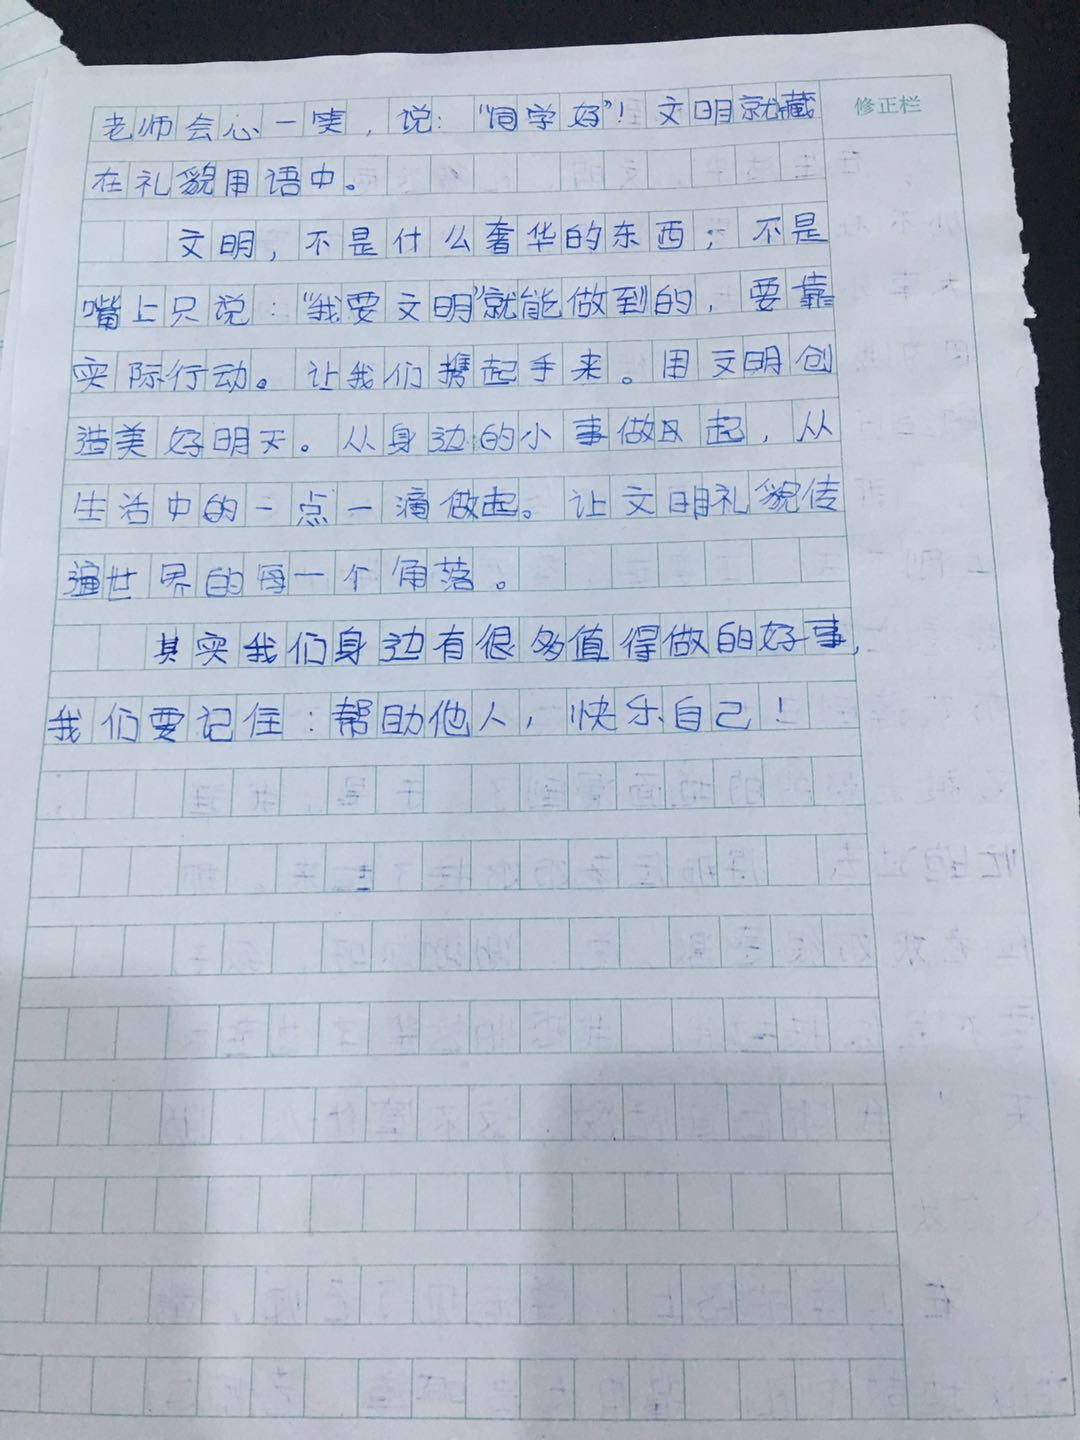 修正栏
老师会心一笑，说："同学好"！文明就藏
在礼貌用语中。
文明，不是什么奢华的东西；不是
嘴上只说："我要文明"就能做到的，要靠
实际行动。让我们携起手来。用文明创
造美好明天。从身边的小事做起，从
生活中的一点一滴做起。让文明礼貌传
遍世界的每一个角落。
其实我们身边有很多值得做的好事，
我们要记住：帮助他人，快乐自己！